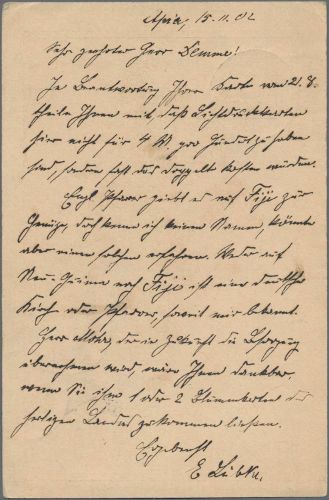 Apia, 15.11.02
Sehr geehrter Herr Demme!
In Beantwortung Ihrer Karte vom 2.8.
theile Ihnen mit, daß Lichtdruckkarten
hier nicht für 4 M. pro Hundert zu haben
sind, sondern fast das doppelte kosten würden.
Engl. Pfarrer giebt es auf Fiji zur
Genüge, doch kenne ich keinen Namen, könnte
aber einen solchen erfahren. Weder auf
Neu-Guinea noch Fiji ist eine deutsche
Kirche oder Pfarrer, soweit mir bekannt.
Herr der in Zukunft die Besorgung
übernehmen wird, wäre Ihnen dankbar,
wenn Sie ihm 1 oder 2 des
dortigen Landes zukommen ließen.
E Lübke.